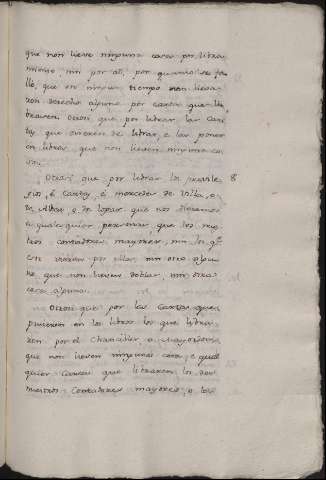 que non lieve ninguna cosa por libra
miento, nin por al, por quanto se fa
lló, que en ningun tiempo non levar
ron derecho alguno por cartas que li
braren. Otrosi, que por librar las Car
tas, que ovieren de librar, e las poner
en libros, que non lieven ninguna co
sa.
Otrosi que por librar los previle 8
gios, è Cartas, è mercedes de Villa, o
de Villas, o de lugar que nos dieremos
à qualesquier personas, que los nue
stros contadores mayores, nin los que
estan por ellos, nin otro algu
no, que non lieven doblas, nin otra
cosa alguna.
Otrosi que por las Cartas que
pusieren en los libros los que libra
ren por el Chanciller, o Mayordomo
que non lieven ninguna cosa, e quales
quier Cartas que libraren los
nuestros Contadores mayores, o los